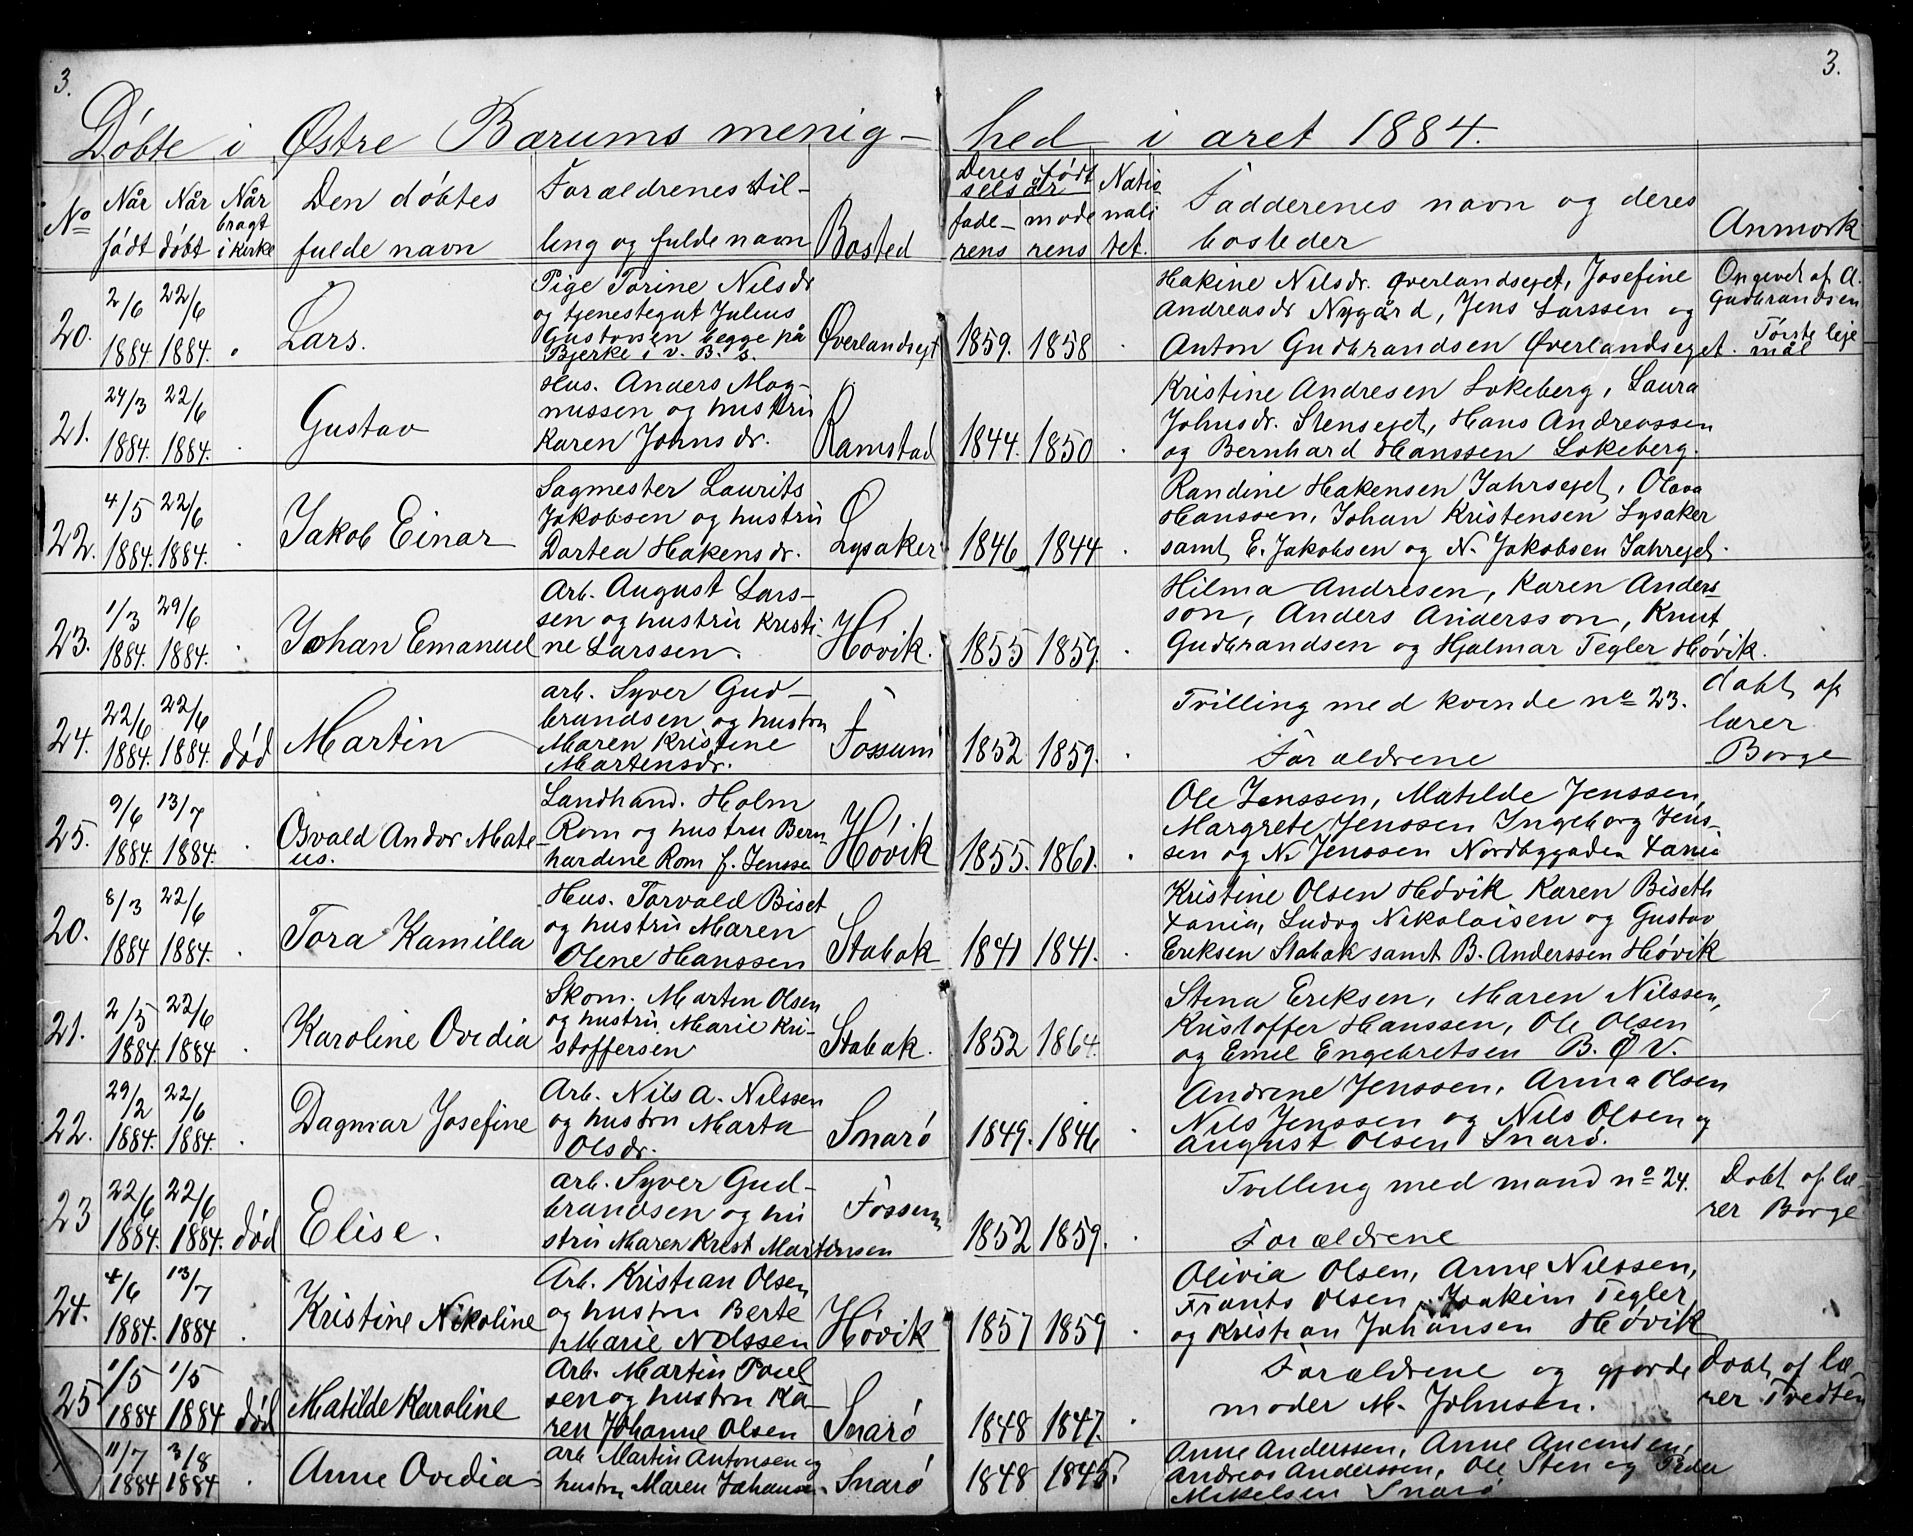 3. 3.
Døbte i Østre Bærums menig- hed i året 1884.
No
Når født
Når døbt
Når bragt i kirke
Den døbtes fulde navn
Forældrenes stilling og fulde navn
Bosted
Deres fødselsår
faderens
moderens
Nationalitet.
Fadderenes navn og deres bosteder
Anmærk
20. 2/6 1884. 22/6 1884. Lars.
Pige Torine Nilsdr
og tjenestegut Julius
Gustavsen begge på
Bjerke i v. B. s.
Øverlandsejet 1859. 1858
Hakine Nilsdr. Øverlandsejet, Josefine
Andreasdr Nygård, Jens Larssen og
Anton Gudbrandsen Øverlandseget.
Opgevet af A.
Gudbrandsen
Første leje
mål
21. 24/3 1884. 22/6 1884. Gustav
Hus. Anders Mag-
nussen og hustru
Karen Johnsdr.
Ramstad 1844. 1850
Kristine Andresen Løkeberg, Laura
Johnsdr. Stensejet, Hans Andreassen
og Bernhard Hanssen Løkeberg.
22. 4/5 1884. 22/6 1884. Jakob Einar
Sagmester Laurits
Jakobsen og hustru
Dortea Håkensdr.
Lysaker 1846 1844
Randine Hakensen Jahrsejet, Olava
Hanssen, Johan Kristensen Lysaker
samt E. Jakobsen og N. Jakobsen Jahrejet.
23. 1/3 1884. 29/6 1884. Johan Emanuel
Arb. August Lars-
sen og hustru Kristi-
ne Larssen.
Høvik. 1855 1859.
Hilma Andresen, Karen Anders-
son, Anders Andersson, Knut
Gudbrandsen og Hjalmar Tegler Høvik.
24. 22/6 1884. 22/6 1884. død Martin
arb. Syver Gud-
brandsen og hustru
Maren Kristine
Martensdr.
Fossum 1852 1859.
Tvilling med kvende no 23.
Forældrene
døbt af
lærer
Borge
25. 9/6 1884. 13/7 1884. Osvald Andor Mate-
us.
Landhand. Holm
Rom og hustru Bern-
hardine Rom f. Jenssen
Høvik 1855. 1861.
Ole Jenssen, Matilde Jenssen,
Margrete Jenssen Ingeborg Jens-
sen og N. Jenssen Nordbygaden Xania
20. 8/3 1884 22/6 1884. Tora Kamilla
Hus. Torvald Biset
og hustru Maren
Olene Hanssen
Stabæk 1841 1841.
Kristine Olsen Høvik Karen Biseth
Xania, Ludvg Nikolaisen og Gustav
Eriksen Stabæk samt B. Anderssen Høvik
21. 2/5 1884. 22/6 1884 Karoline Ovedia
Skom. Martin Olsen
og hustru Marie Kri-
stoffersen
Stabæk. 1852 1864.
Stina Eriksen, Maren Nilssen,
Kristoffer Hanssen, Ole Olsen
og Emil Engebretsen B. Ø V.
22. 29/2 1884. 22/6 1884. Dagmar Josefine
Arb. Nils A. Nilssen
og hustru Marta
Olsdr.
Snarø 1849. 1846
Andrine Jenssen, Anna Olsen
Nils Jenssen og Nils Olsen og
August Olsen Snarø.
23 22/6 1884. 22/6 1884. død Elise.
arb. Syver Gud-
brandsen og hu
stru Maren Krest Martinsen
Fossum 1852 1859.
Tvilling med mand no 24.
Forældrene
Døbt af læ-
rer Borge
24. 4/6 1884. 13/7 1884 Kristine Nikoline
Arb. Kristian Olsen
og hustru Berte
Marie Nilssen
Høvik 1857 1859
Olivia Olsen, Anne Nilssen,
Frants Olsen, Joakim Tegler
og Kristian Johansen Høvik
25 1/5 1884 1/5 1884 død Matilde Karoline
Arb. Martin Poul
sen og hustru Ka-
ren Johanne Olsen
Snarø 1848 1847.
Forældrene og gjorde
moder M. Johnsen.
Døbt af læ-
rer Tvedten
11/7 1884 3/8 1884 Anne Ovedia
arb Martin Antonsen og
hustru Maren Johansen
Snarø 1848 1845.
Anne Anderssen, Anne
Andreas Anderssen, Ole Sten og Peder
Mikelsen Snarø